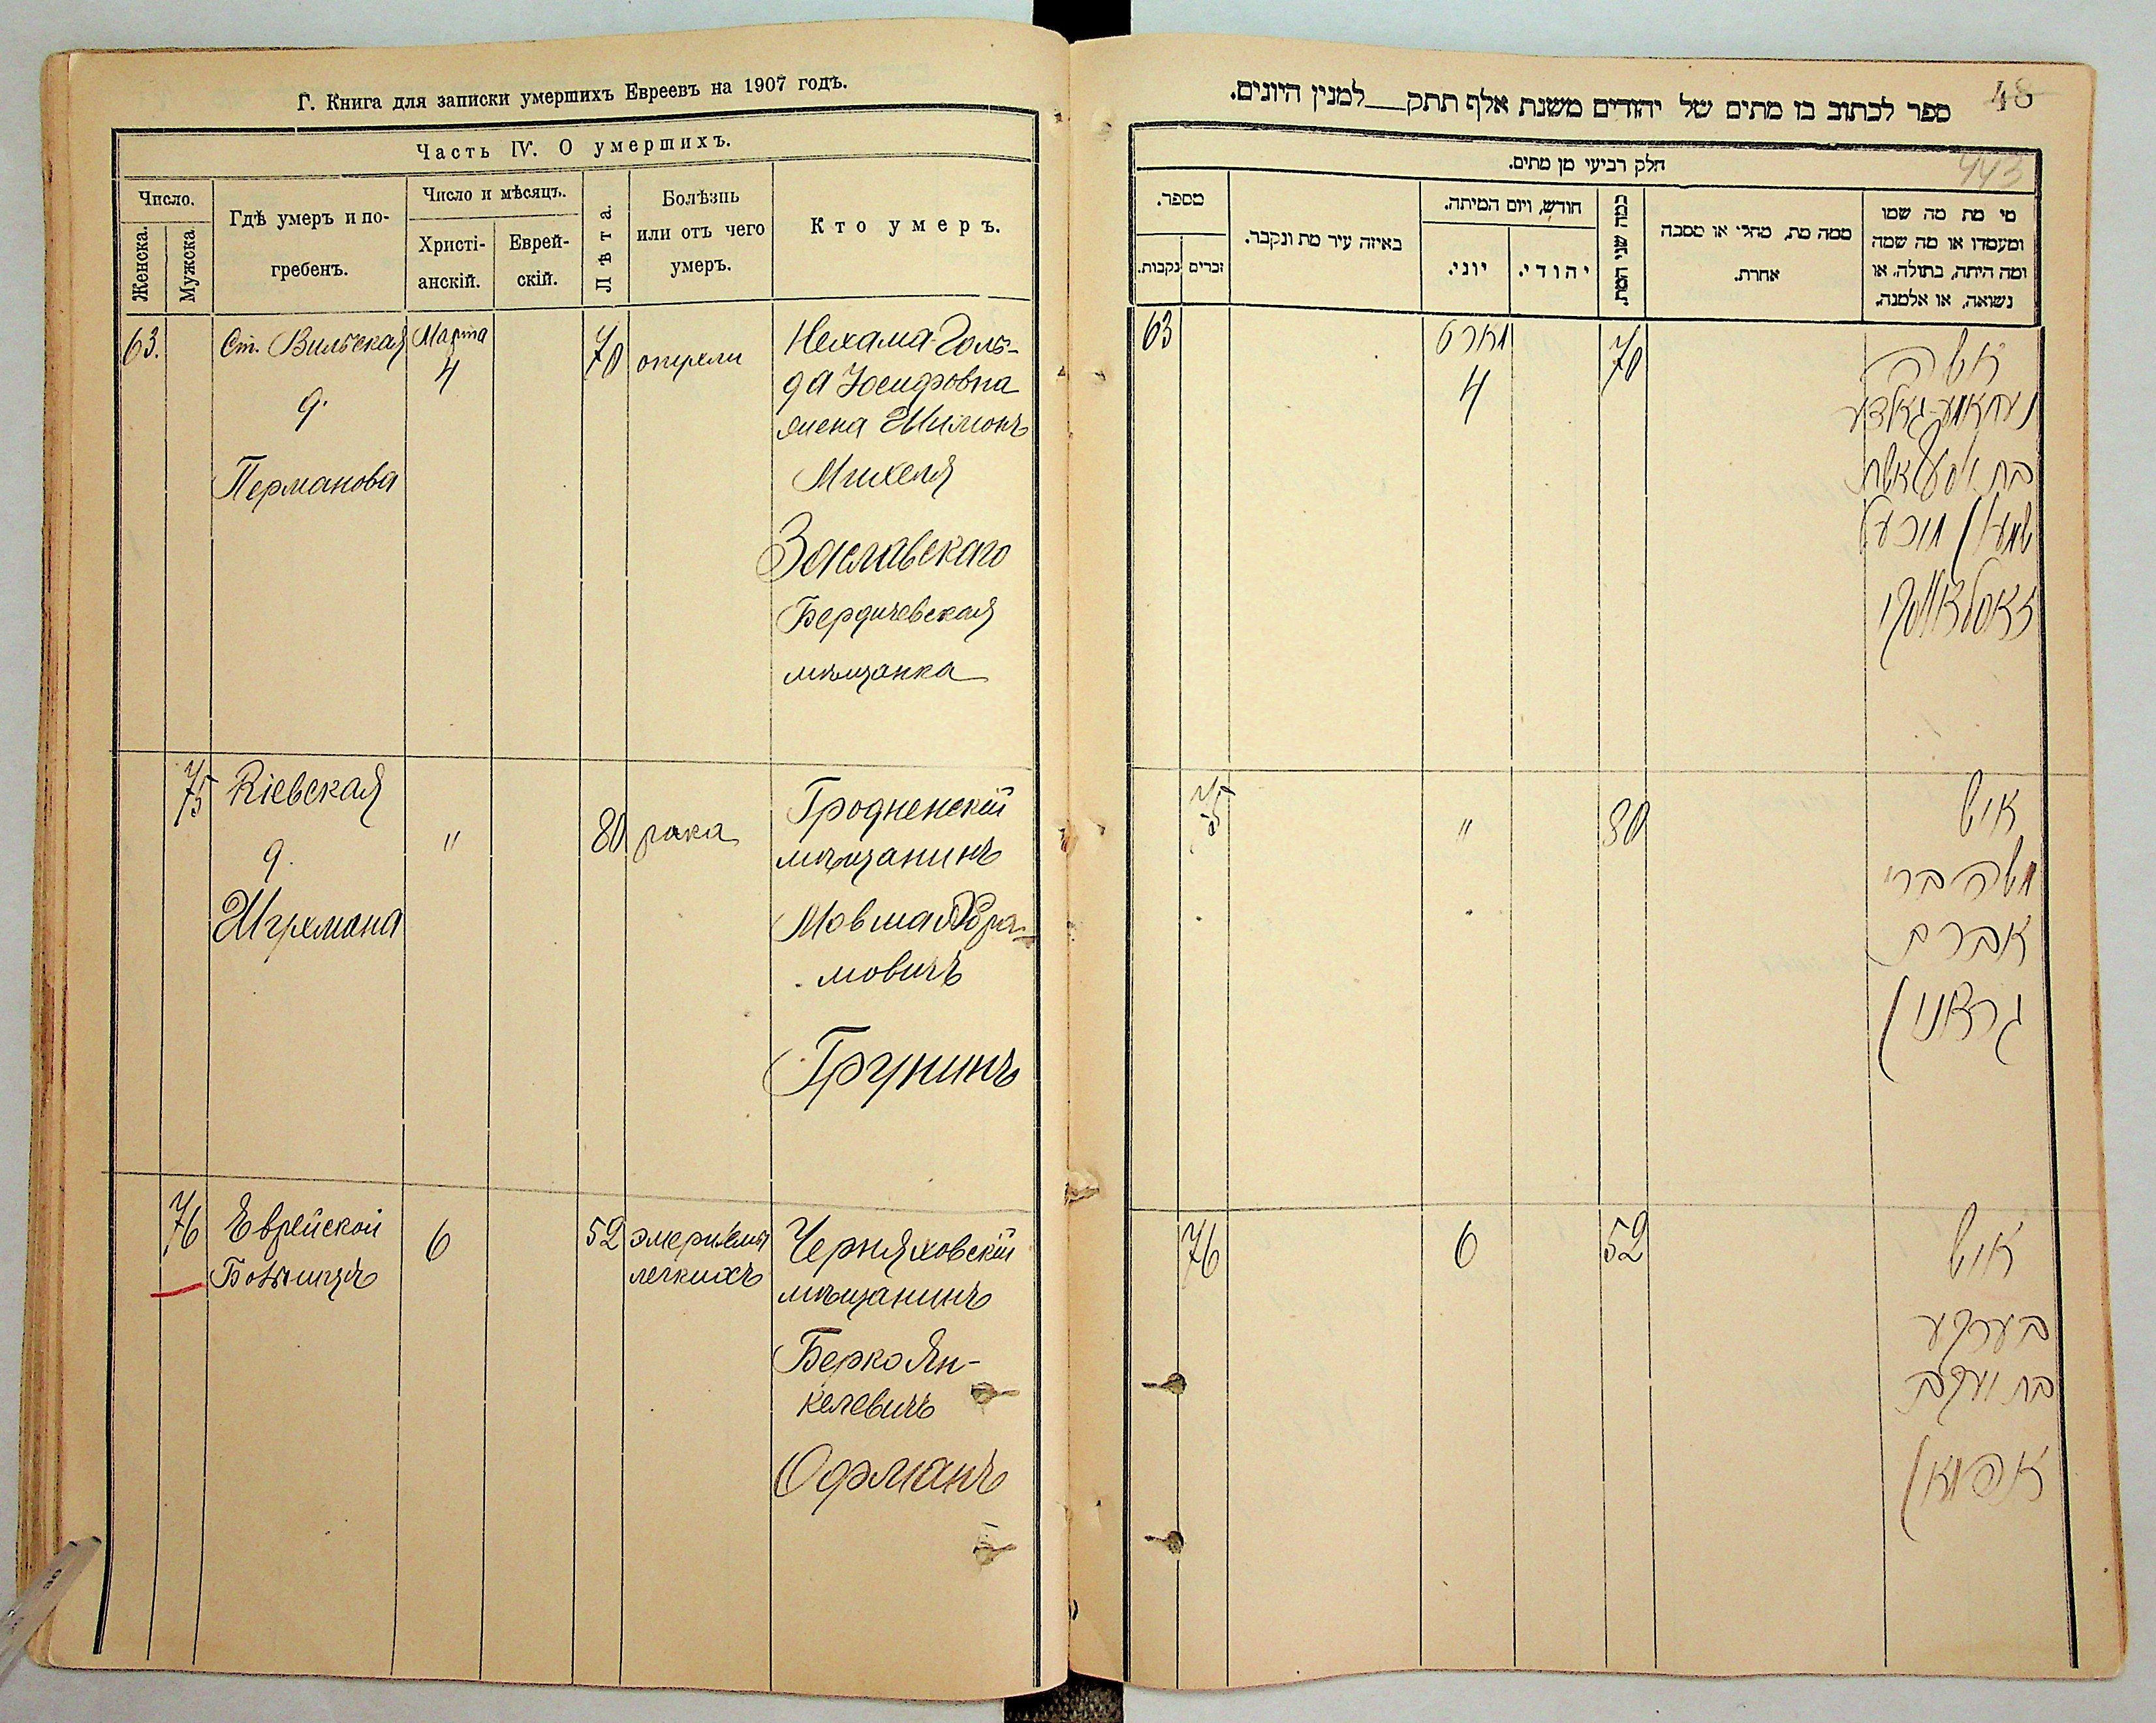 Г. Книга для записки умершихъ Евреевъ на 1907 годъ.
Часть IV. О умершихъ.
Число.
Женска.
Мужска.
Гдѣ умеръ и по-
гребенъ.
Число и мѣсяцъ.
Христі-
анскій.
Еврей-
скій.
Лѣта.
Болѣзнь
или отъ чего
умеръ.
Кто умеръ.
63.
Ст. Вильская
д.
Перманова
Марта
4
70
опухоли
Нехама-Голь-
да Іосифовна
жена Шимонъ
Михеля
Заславскаго
Бердичевская
мѣщанка
75
Кіевская
д.
"
80
рака
Гродненскій
мѣщанинъ
Мовша Абра-
мовичъ
Грунинъ
76
Еврейской
Больницѣ
6
52
эмфизема
легкихъ
Черняховскій
мѣщанинъ
Берко Ян-
келевичъ
Офманъ
48
ספר לכתוב בו מתים של יהודים משנת אלף תתק___למנין היונים.
443
חלק רביעי מן מתים.
מספר.
נקבות.
זכרים
באיזה עיר מת ונקבר.
חודש, ויום המיתה.
יוני.
יהודי.
כמה שני המת.
ממה מת, מחלי או מסבה
אחרת.
מי מת מה שמו
ומעמדו או מה שמה
ומה היתה, בתולה, או
נשואה, או אלמנה.
63
מארט
4
70
אשה
נעחאמע-גאלדע
בת יוסף אשת
שמעון מיכעל
זאסלאווסקי
75
"
80
איש
משה ברי
אברם
גראנין
76
6
52
איש
בערקע
בת יעקב
אפמאן